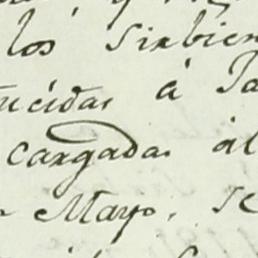 los sirbien
ucidas á Ja
cargadas al
Mayo, se